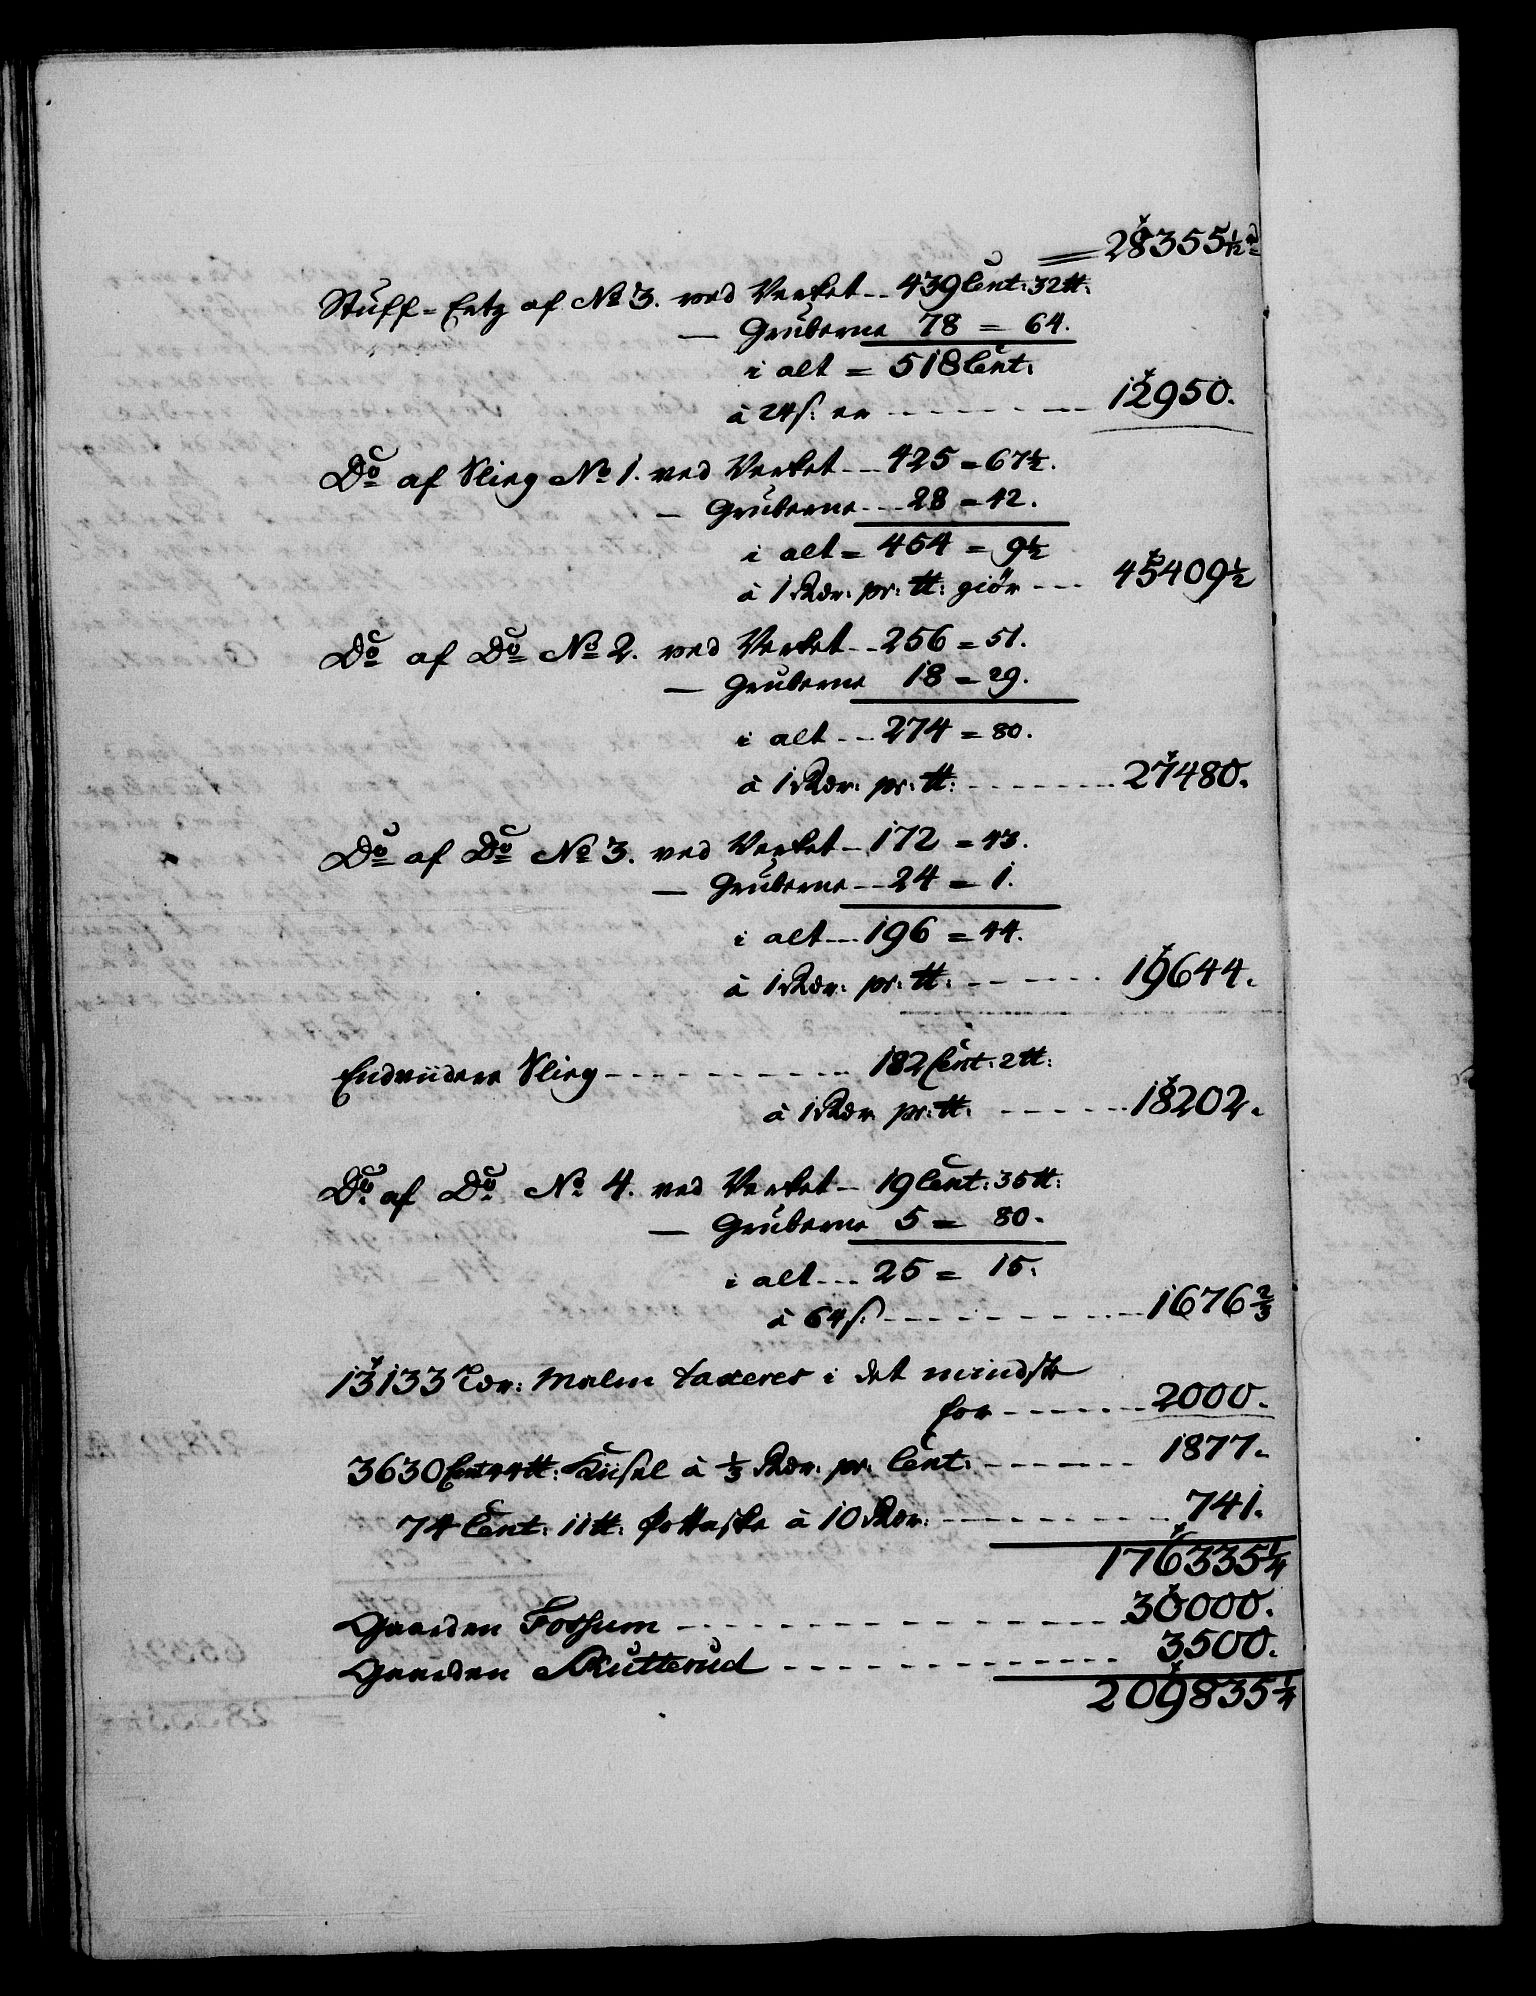 = 28355 1/12 rd
Stuff-Ertz af No 3. ved Verket -- 439 Cent: 32 tt:
— Gruberne 78 = 64.
i alt = 518 Cent:
à 24 s: er ------- 12950.
Do af Slieg No 1. ved Verket --- 425 = 67½.
— Gruberne --- 28 = 42.
i alt = 454 = 9½
à 1 Rdr: pr: tt: giör --- 45409½
Do af Do No 2. ved Verket -- 256 = 51.
— Gruberne 18 = 29.
i alt -- 274 = 80.
à 1 Rdr: pr: tt: -------- 27480.
Do af Do No 3. ved Verket -- 172 = 43.
— Gruberne --- 24 = 1.
i alt --- 196 = 44.
à 1 Rdr: pr: tt: ------- 19644.
Endviidere Slieg ----------- 182 Cent: 2 tt:
à 1 Rdr pr: tt: ------ 18202.
Do af Do No 4. ved Verket -- 19 Cent: 35 tt:
— Gruberne 5 = 80.
i alt --- 25 = 15.
à 64 s. ----------- 1676 2/3
13133 Tdr: Malm taxeres i det mindste
for ------ 2000.
3630 Cent 44 tt: Kiisel à 1/3 Rdr: pr: Cent: ------- 1877.
74 Cent: 11 tt: Pottaske à 10 Rdr: --------- 741.
176335¼
Gaarden Fossum --------------- 30000.
Gaarden Skutterud ------------ 3500.
209835¼